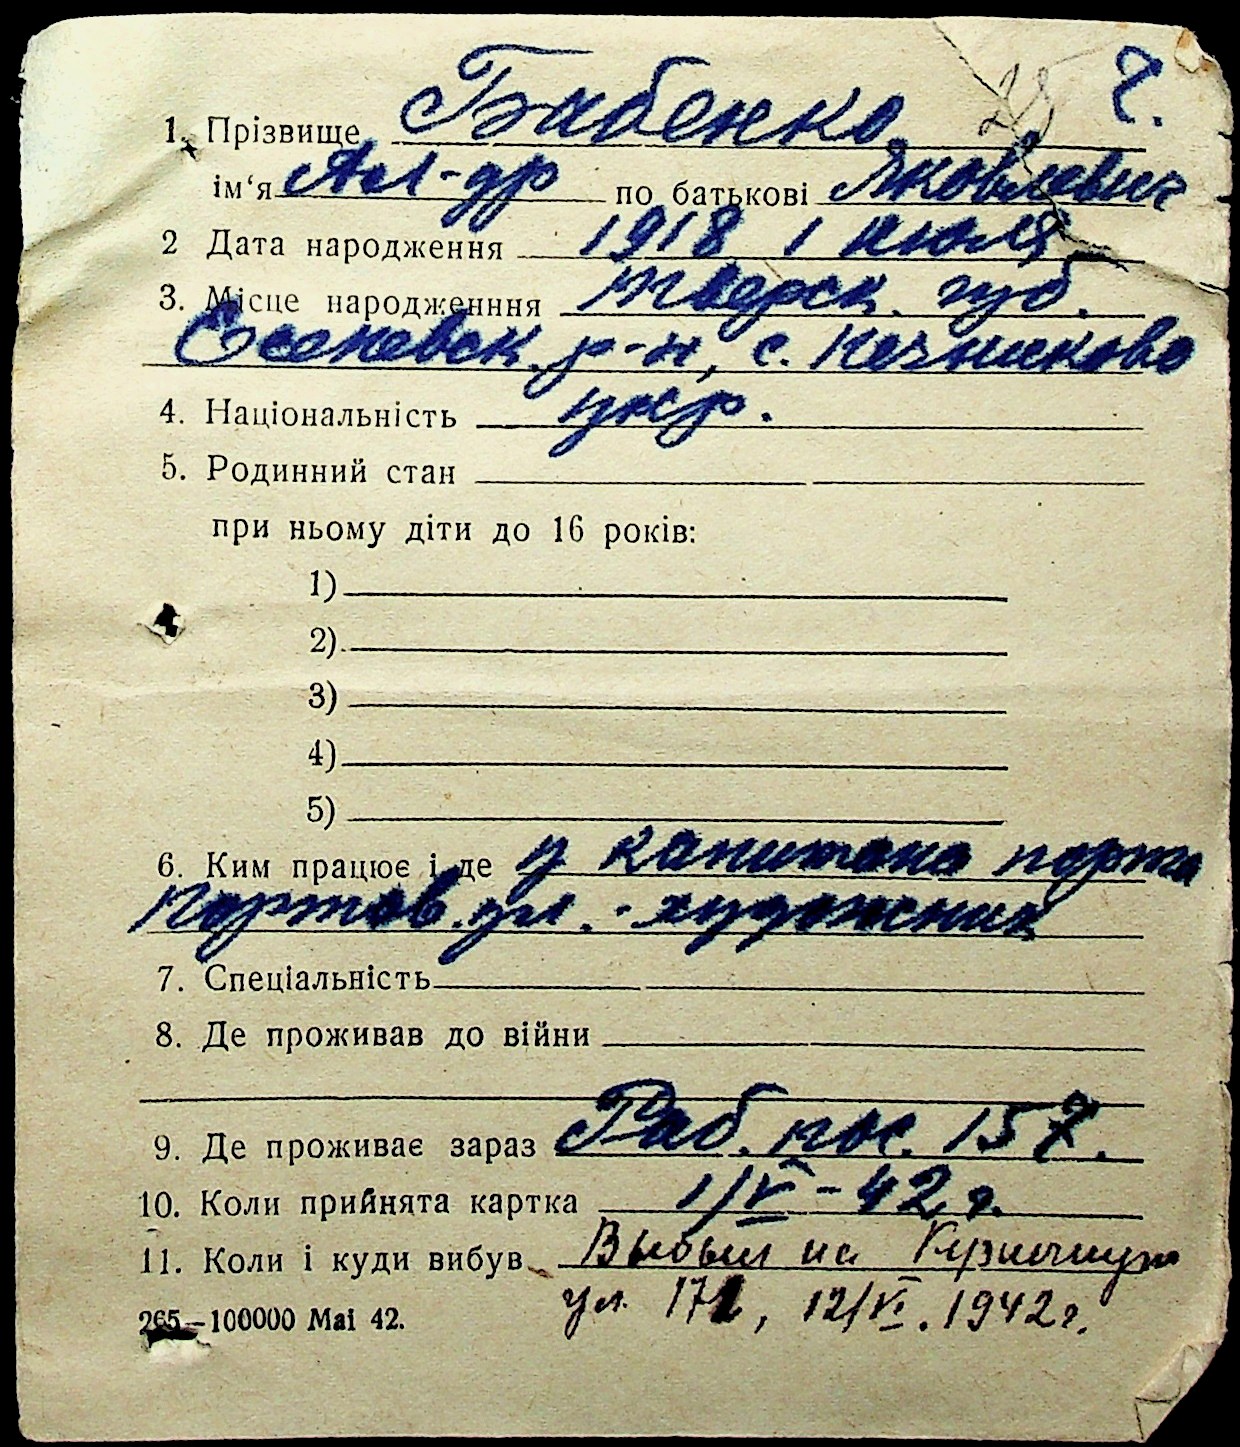 25 г.
1. Прізвище Бабенко
ім‘я Ал-др по батькові Яковлевич
2 Дата народження 1918 1 июля
3. Місце народженння Тверск. губ.
Есеневск. р-н, с.
4. Національність укр.
5. Родинний стан
при ньому діти до 16 років:
1)
2)
3)
4)
5)
6. Ким працює і де у капитана порта
Портов. ул. - художник
7. Спеціальність
8. Де проживав до війни
9. Де проживає зараз Раб. пос. 157.
10. Коли прийнята картка 1/VI - 42 г.
11. Коли і куди вибув Выбыл на Кузнечную
ул. 171, 12/VI. 1942 г.
265—100000 Маі 42.